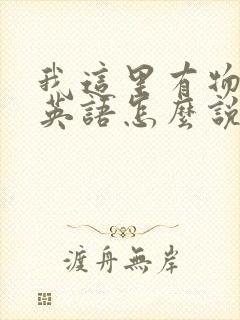 我這里有物
英語怎麼說
渡舟無岸